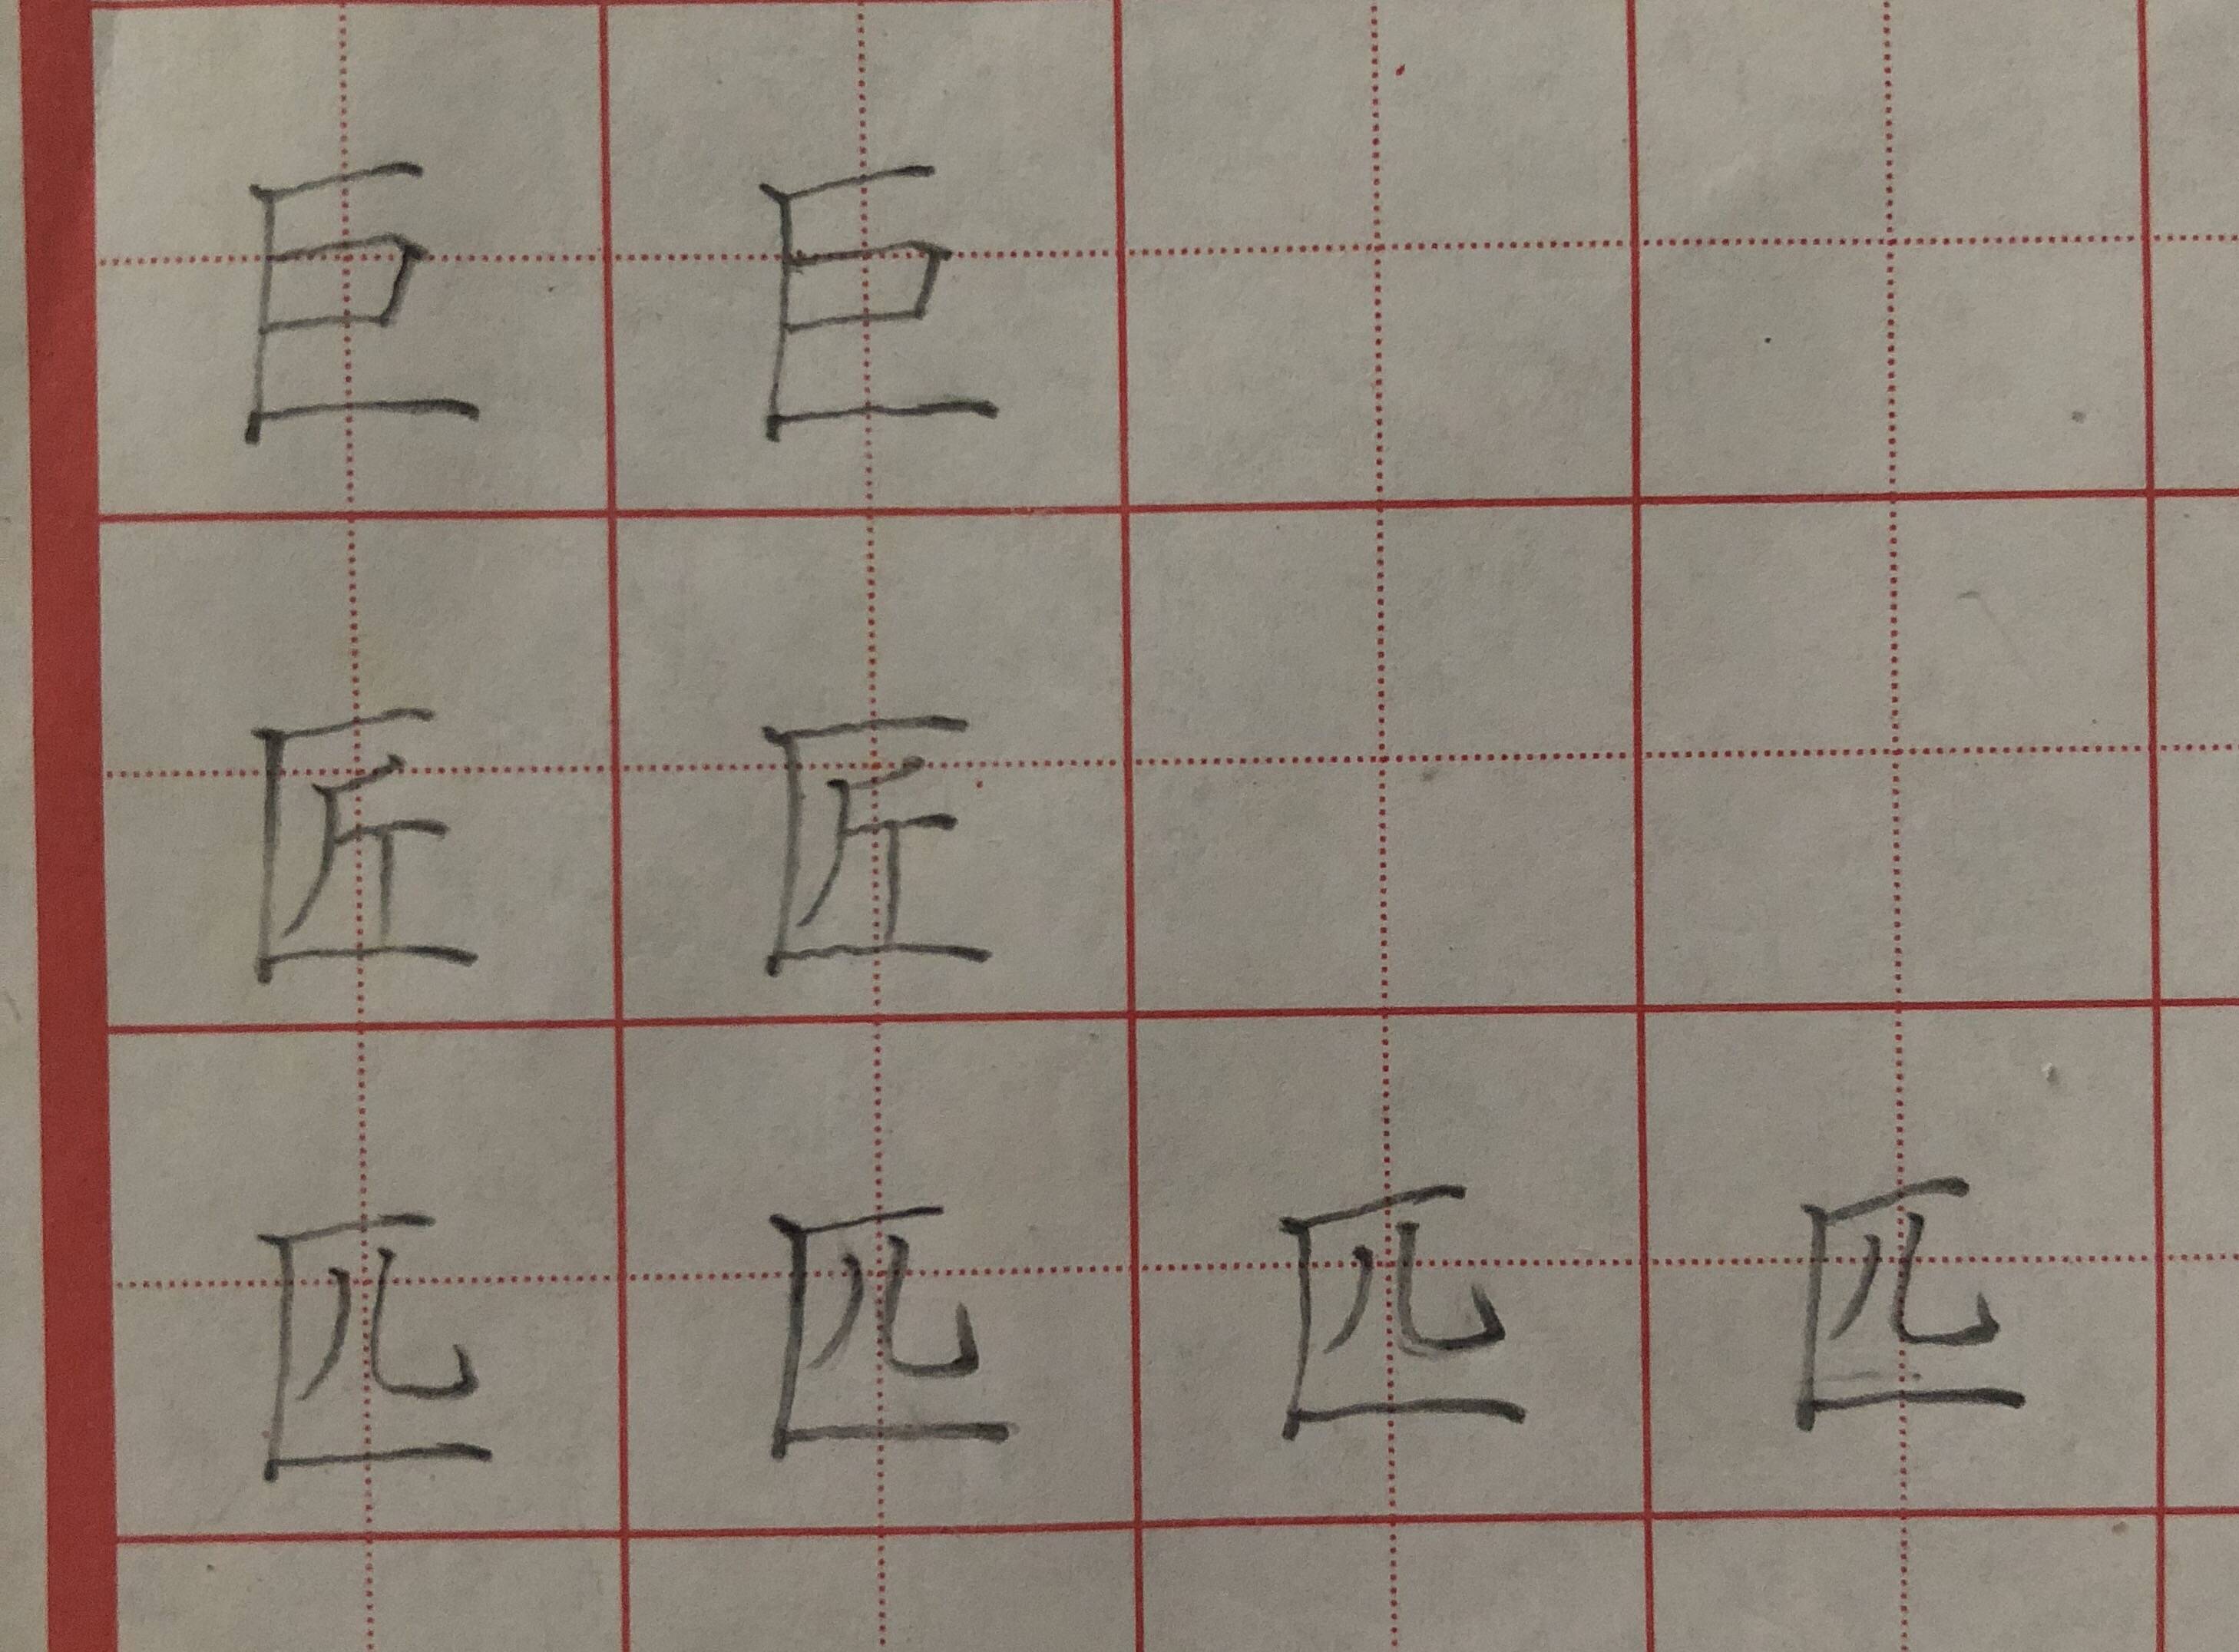 巨巨
匠匠
匹匹匹匹